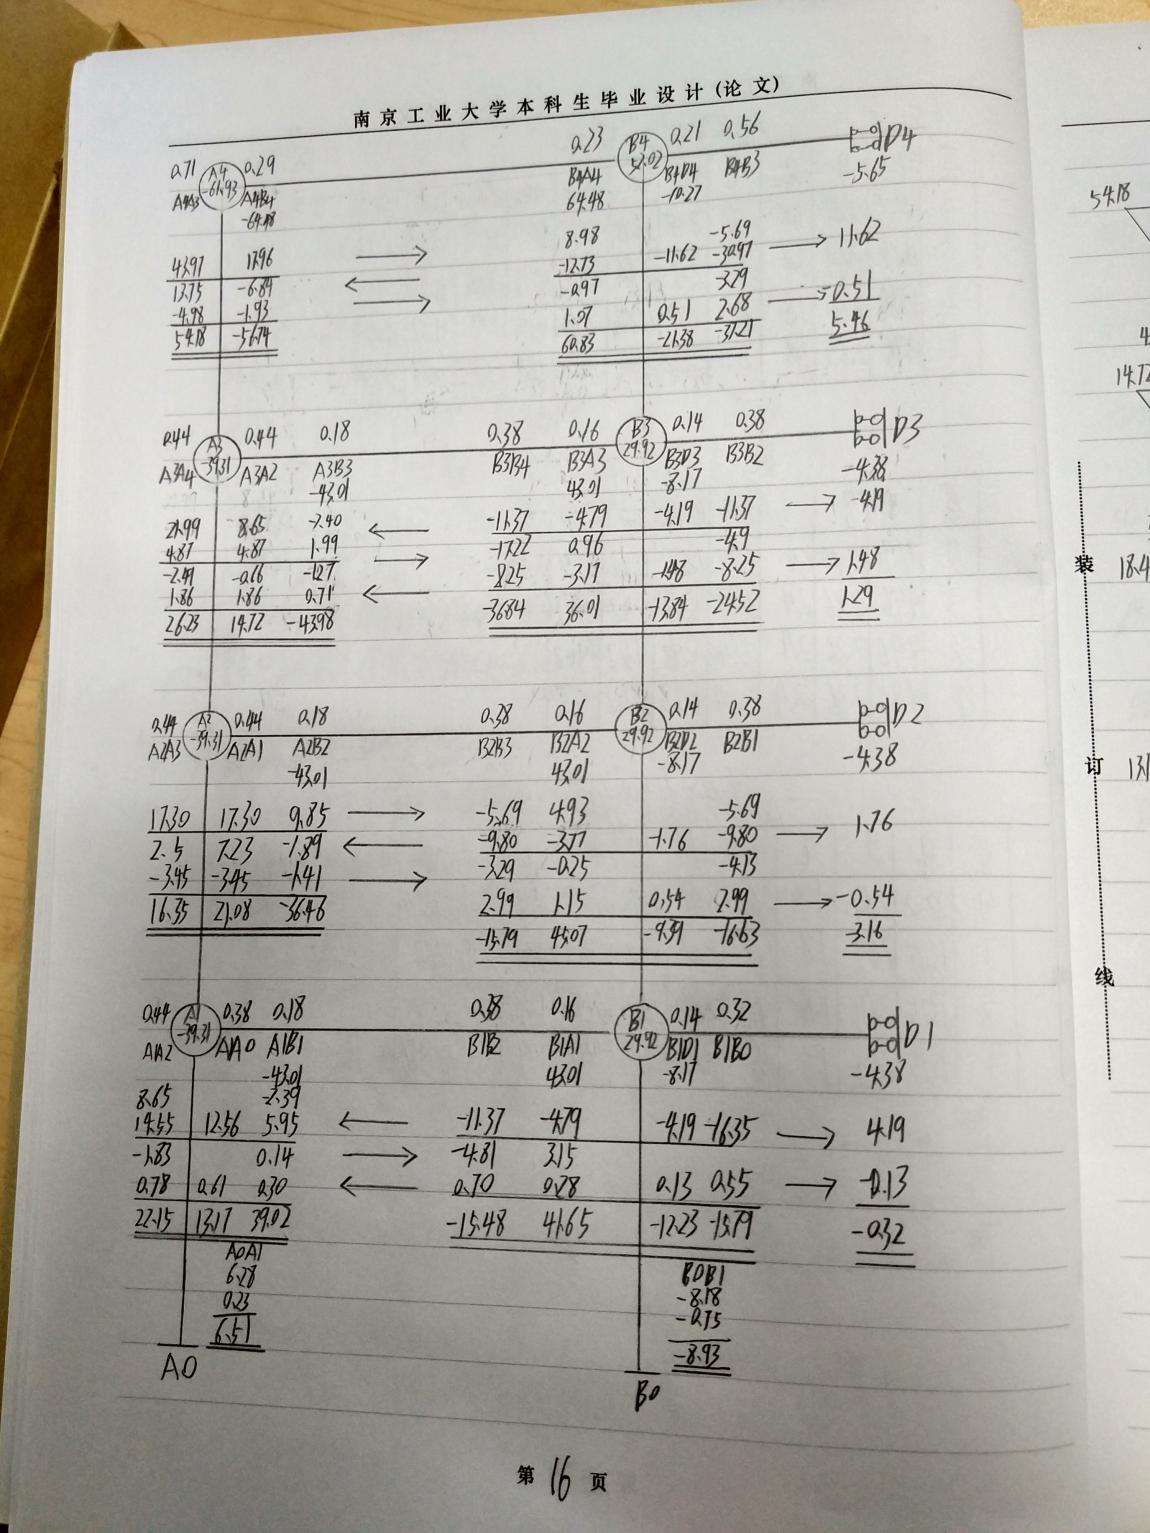 南京工业大学本科生毕业设计(论文)
0.23 B4 0.21 0.56
0.71 A4 0.29 52.02 D4
-61.93 B4A4 B4D4 B4B3 -5.65
A4A3 A4B4 64.48 -10.27
-64.48
8.98 -5.69
43.97 17.96 -12.73 -11.62 -30.97 11.62
13.75 -6.89 -0.97 -3.29
-4.98 -1.93 1.07 0.51 2.68 -0.51
54.18 -56.74 60.83 -21.38 -37.21 5.46
0.44 A3 0.44 0.18 0.38 0.16 B3 0.14 0.38 D3
-39.31 29.92
A3A4 A3A2 A3B3 B3B4 B3A3 B3D3 B3B2 -4.38
-43.01 43.01 -8.17
21.99 8.65 -7.40 -11.37 -4.79 -4.19 -11.37 -4.19
4.87 4.87 1.99 -17.22 0.96 -4.9
-2.49 -0.66 -1.27 -8.25 -3.17 -1.48 -8.25 1.48
1.86 1.86 0.71
26.23 14.72 -43.98 -36.84 36.01 -13.84 -24.52 1.29
0.44 A2 0.44 0.18 0.38 0.16 B2 0.14 0.38 D2
-39.31 29.92
A2A3 A2A1 A2B2 B2B3 B2A2 B2D2 B2B1 -4.38
-43.01 43.01 -8.17
17.30 17.30 9.85 -5.69 4.93 -5.69
2.5 7.23 -1.89 -9.80 -3.77 -1.76 -9.80 1.76
-3.45 -3.45 -1.41 -3.29 -0.25 -4.13
2.99 1.15 0.54 2.99 -0.54
16.35 21.08 -36.46 -15.79 45.07 -9.39 -16.63 3.16
0.44 A1 0.38 0.18 0.38 0.16 B1 0.14 0.32 D1
-39.31 29.92
A1A2 A1A0 A1B1 B1B2 B1A1 B1D1 B1B0 -4.38
-43.01 43.01 -8.17
8.65 -2.39
14.55 12.56 5.95 -11.37 -4.79 -4.19 -16.35 4.19
-1.83 0.14 -4.81 3.15
0.78 0.61 0.30 0.70 0.28 0.13 0.55 -0.13
22.15 13.17 39.02 -15.48 41.65 -12.23 -15.79 -0.32
A0A1 B0B1
6.28 -8.18
0.23 -0.75
6.51 -8.93
A0 B0
第 16 页
54.18
14.72
装
18.4
订
13.1
线